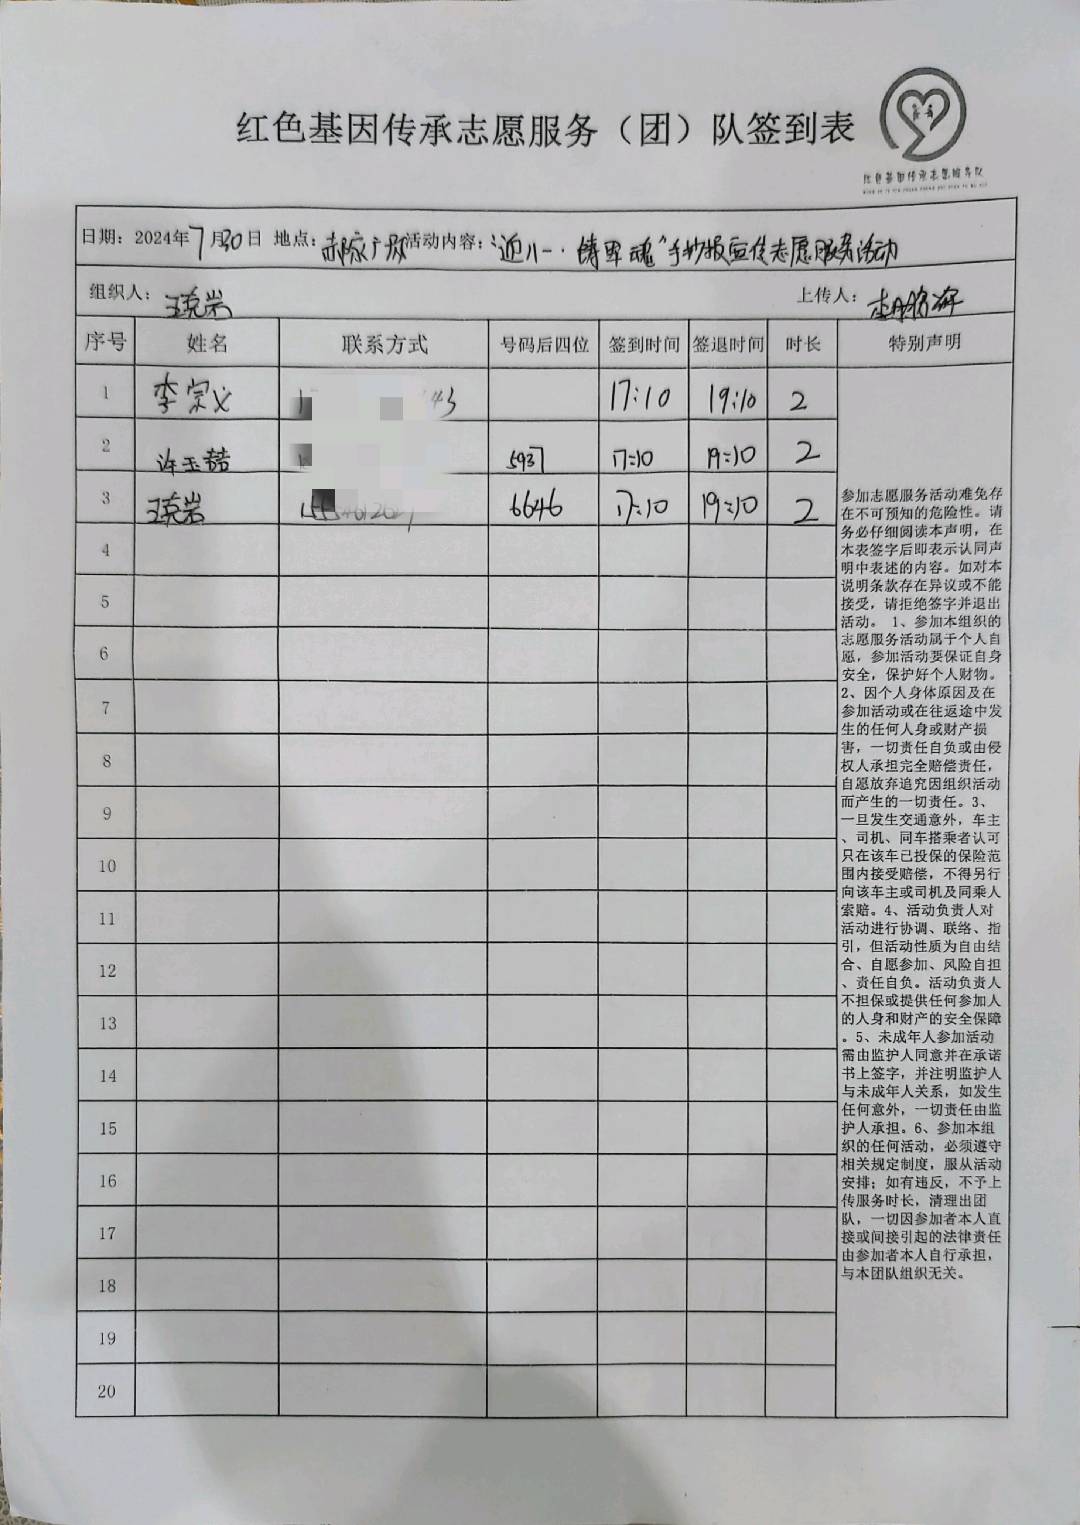 红色基因传承志愿服务（团）队签到表
红色基因传承志愿服务队
日期：2024年7月30日 地点：郝家广场 活动内容：“迎八一·铸军魂”手抄报宣传志愿服务活动
组织人：王克岩 上传人：
序号 姓名 联系方式 号码后四位 签到时间 签退时间 时长 特别声明
1 李宗义 17:10 19:10 2
2 许玉喆 5937 17:10 19:10 2
3 王克岩 6646 17:10 19:10 2
4
5
6
7
8
9
10
11
12
13
14
15
16
17
18
19
20
参加志愿服务活动难免存
在不可预知的危险性。请
务必仔细阅读本声明，在
本表签字后即表示认同声
明中表述的内容。如对本
说明条款存在异议或不能
接受，请拒绝签字并退出
活动。 1、参加本组织的
志愿服务活动属于个人自
愿，参加活动要保证自身
安全，保护好个人财物。
2、因个人身体原因及在
参加活动或在往返途中发
生的任何人身或财产损
害，一切责任自负或由侵
权人承担完全赔偿责任，
自愿放弃追究因组织活动
而产生的一切责任。3、
一旦发生交通意外，车主
、司机、同车搭乘者认可
只在该车已投保的保险范
围内接受赔偿，不得另行
向该车主或司机及同乘人
索赔。4、活动负责人对
活动进行协调、联络、指
引，但活动性质为自由结
合、自愿参加、风险自担
、责任自负。活动负责人
不担保或提供任何参加人
的人身和财产的安全保障
。5、未成年人参加活动
需由监护人同意并在承诺
书上签字，并注明监护人
与未成年人关系，如发生
任何意外，一切责任由监
护人承担。6、参加本组
织的任何活动，必须遵守
相关规定制度，服从活动
安排；如有违反，不予上
传服务时长，清理出团
队，一切因参加者本人直
接或间接引起的法律责任
由参加者本人自行承担，
与本团队组织无关。